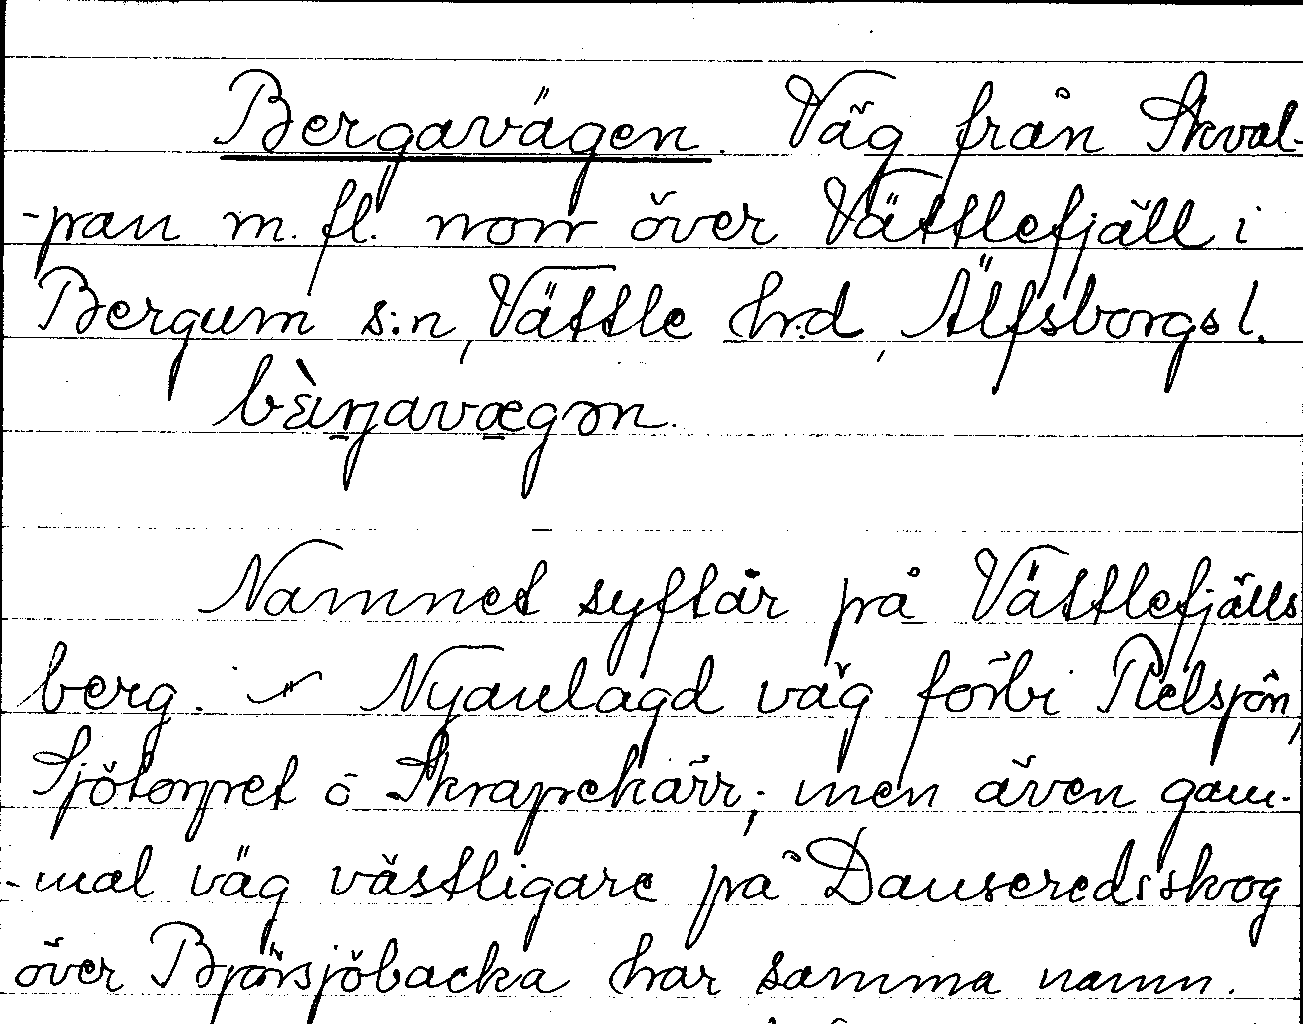 Bergavägen. Väg från Skval-
-pan m. fl. norr över Vättlefjäll i
Bergum s:n, Vättle h:d, Älfsborgs l.
bæ̀ŋavægən.
Namnet syftar på Vättlefjälls
berg. Nyanlagd väg förbi Relsjön,
Sjötorpet o Skrapekärr; men även gam-
-mal väg västligare på Danseredsskog
över Björsjöbacka har samma namn.